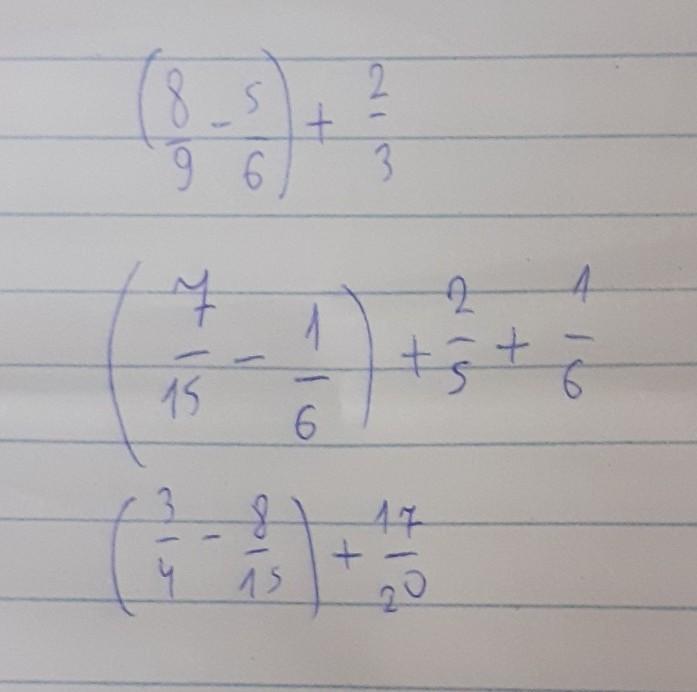 (8/9 - 5/6) + 2/3
(7/15 - 1/6) + 2/5 + 1/6
(3/4 - 8/15) + 17/20